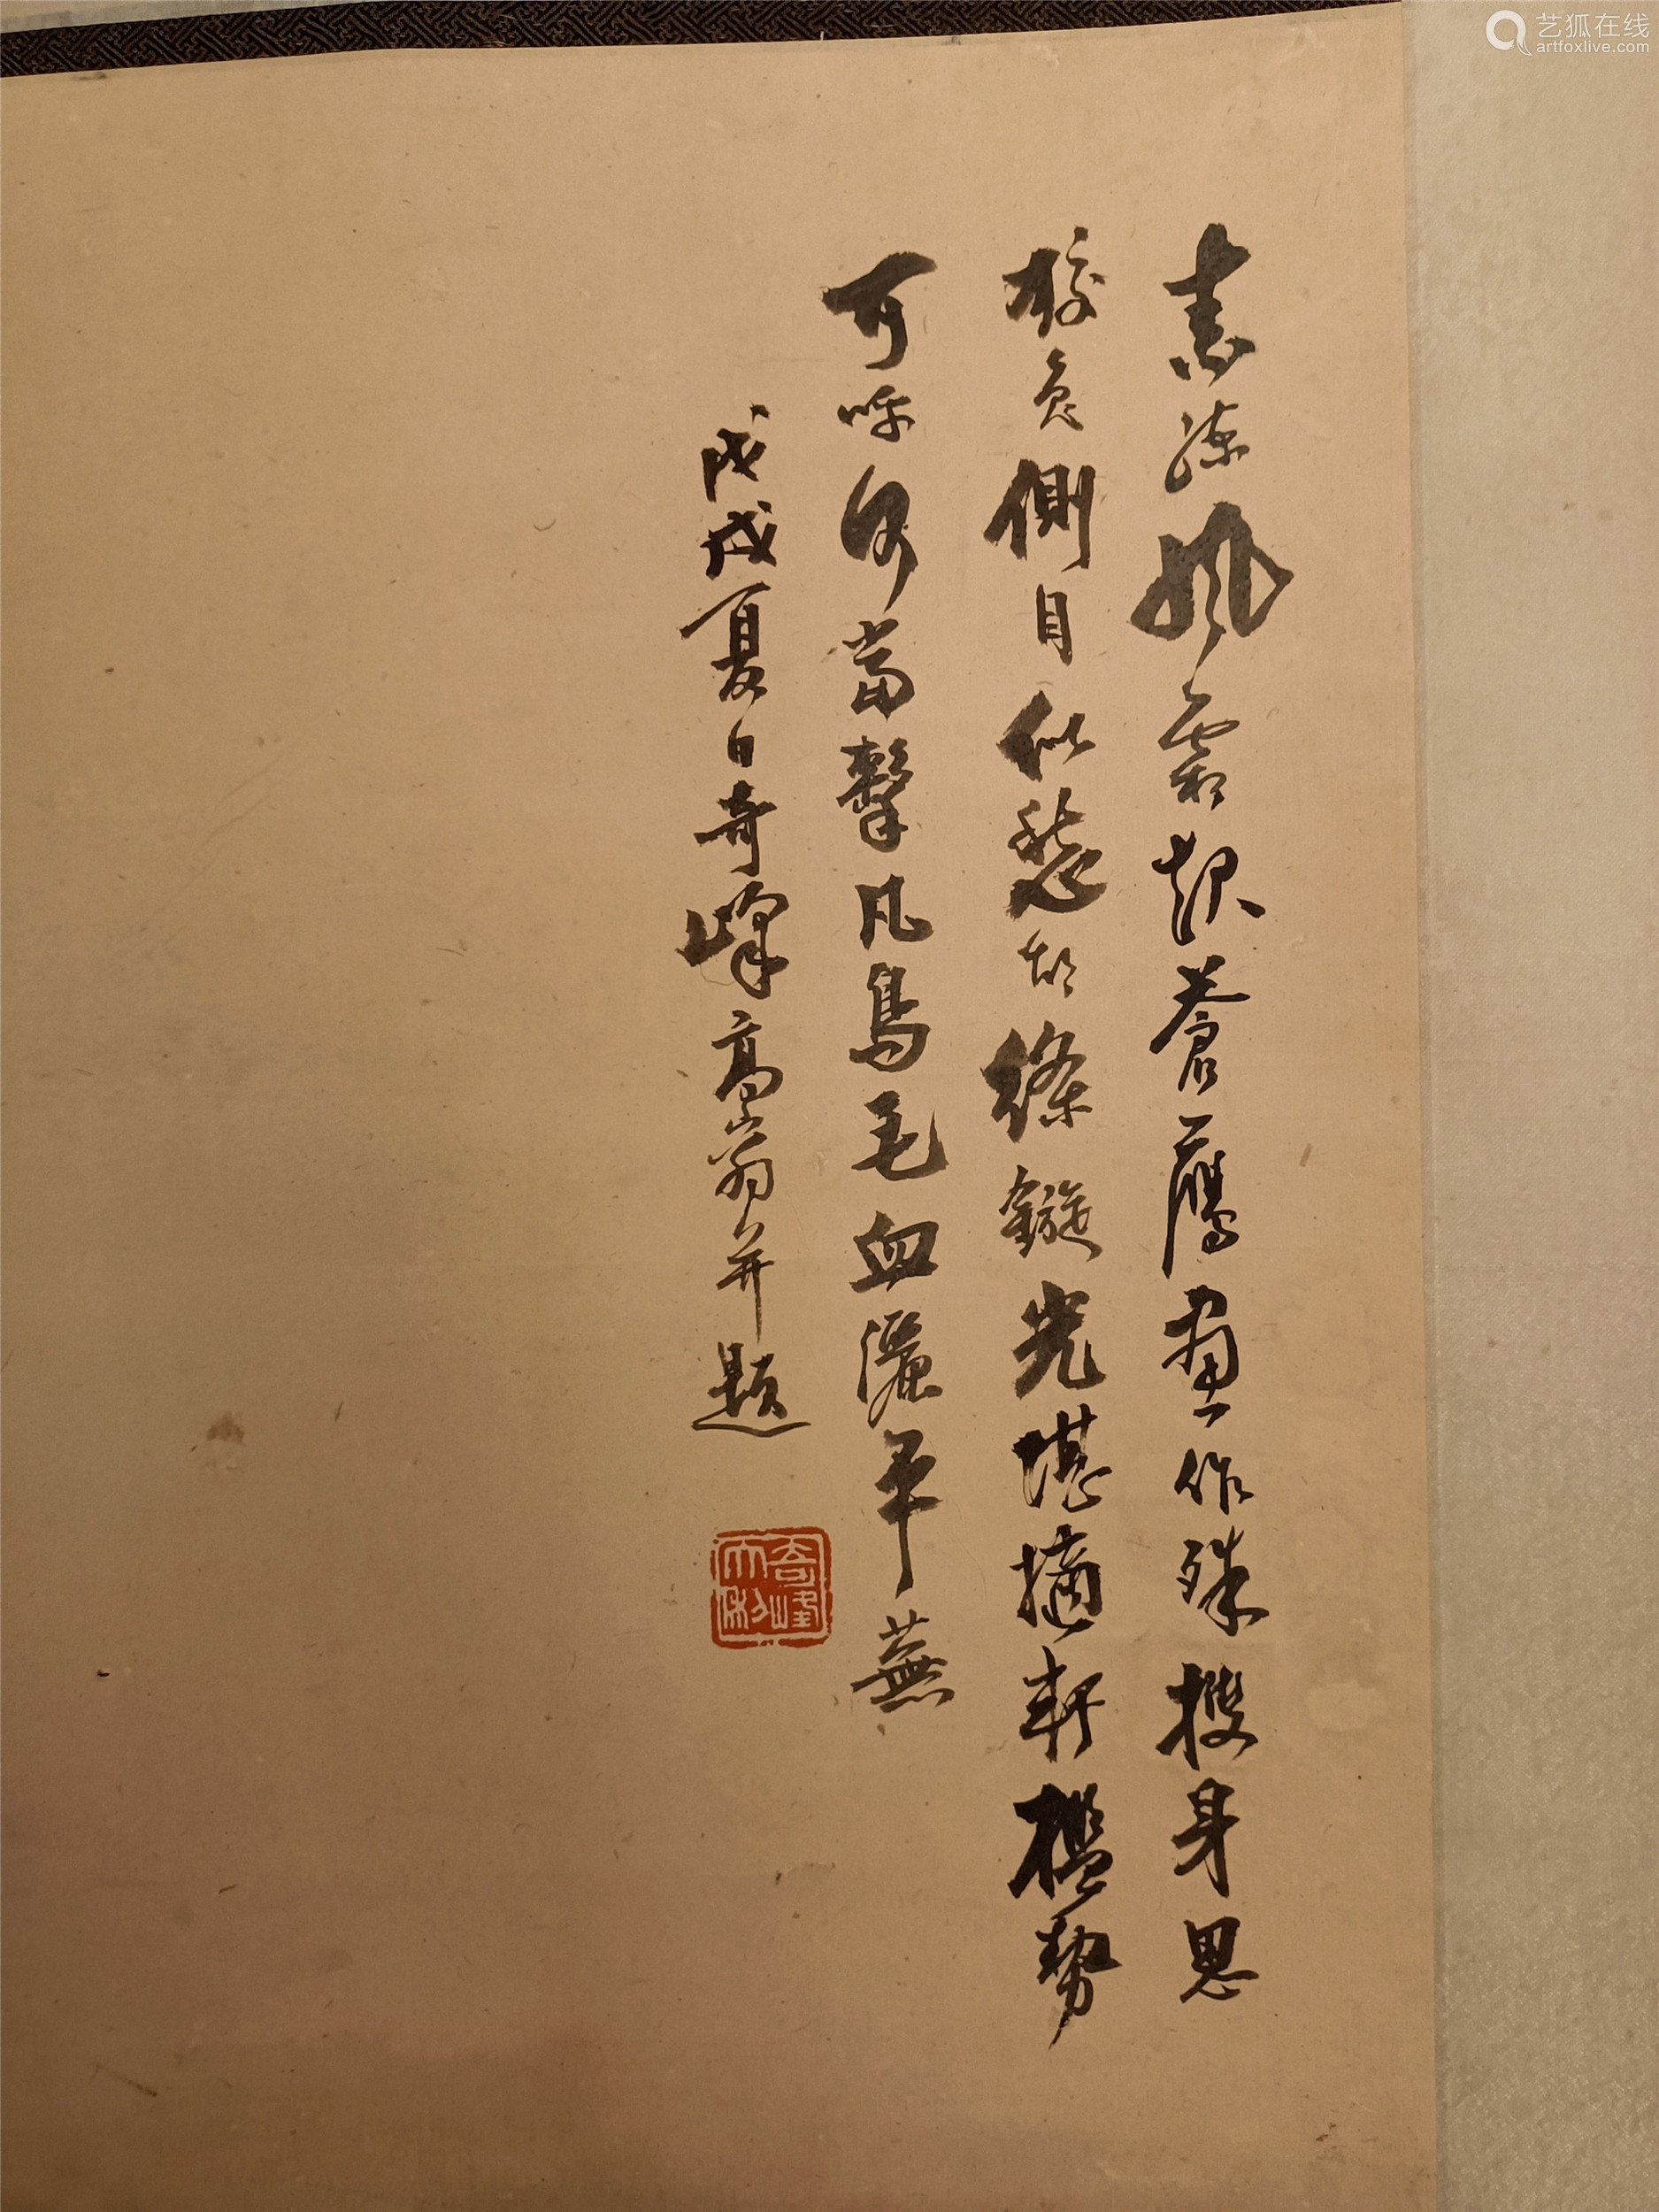 艺狐在线
artfoxlive.com
素練風霜起蒼鷹畫作殊㩳身思
狡兔側目似愁胡絛鏇光堪摘軒檻勢
可呼何當擊凡鳥毛血灑平蕪
戊戌夏日奇峰高嵡并題
奇峰